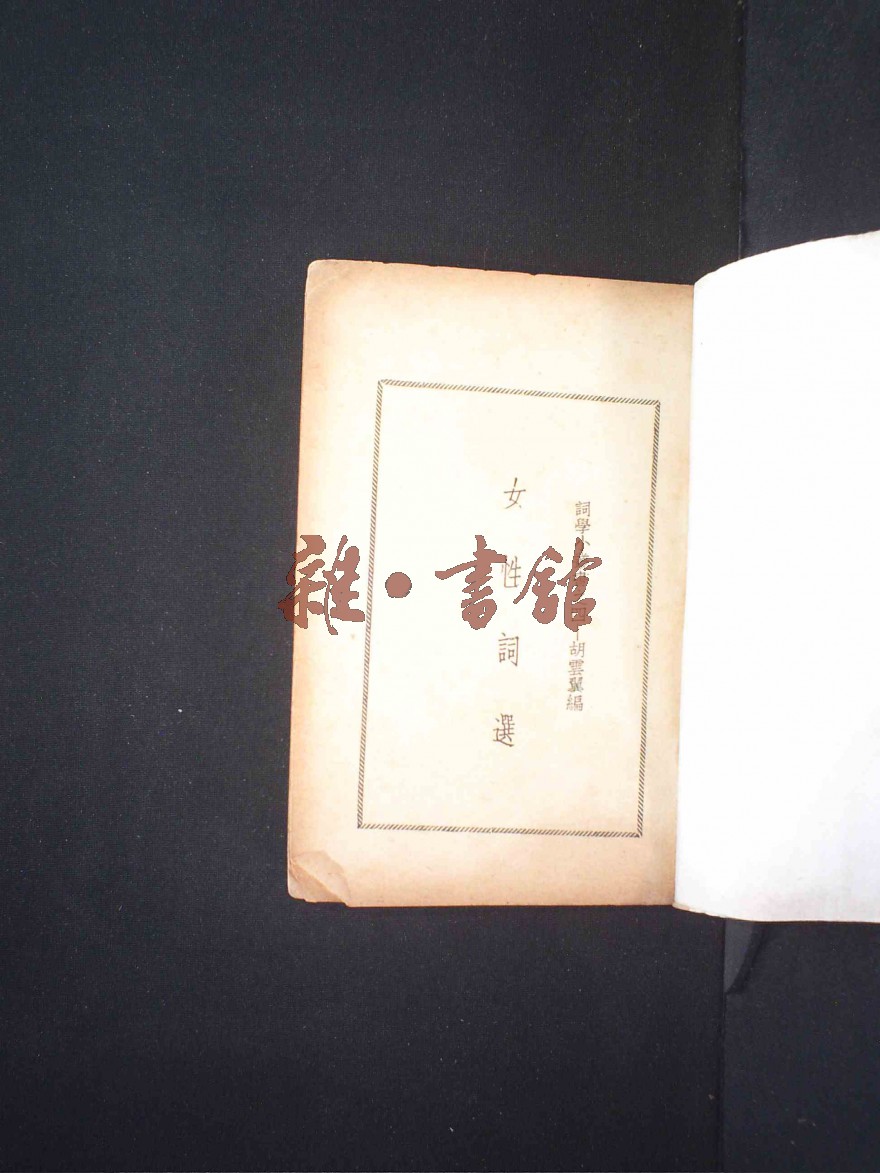 詞學小
四—胡雲翼編
女性詞選
雜·書館